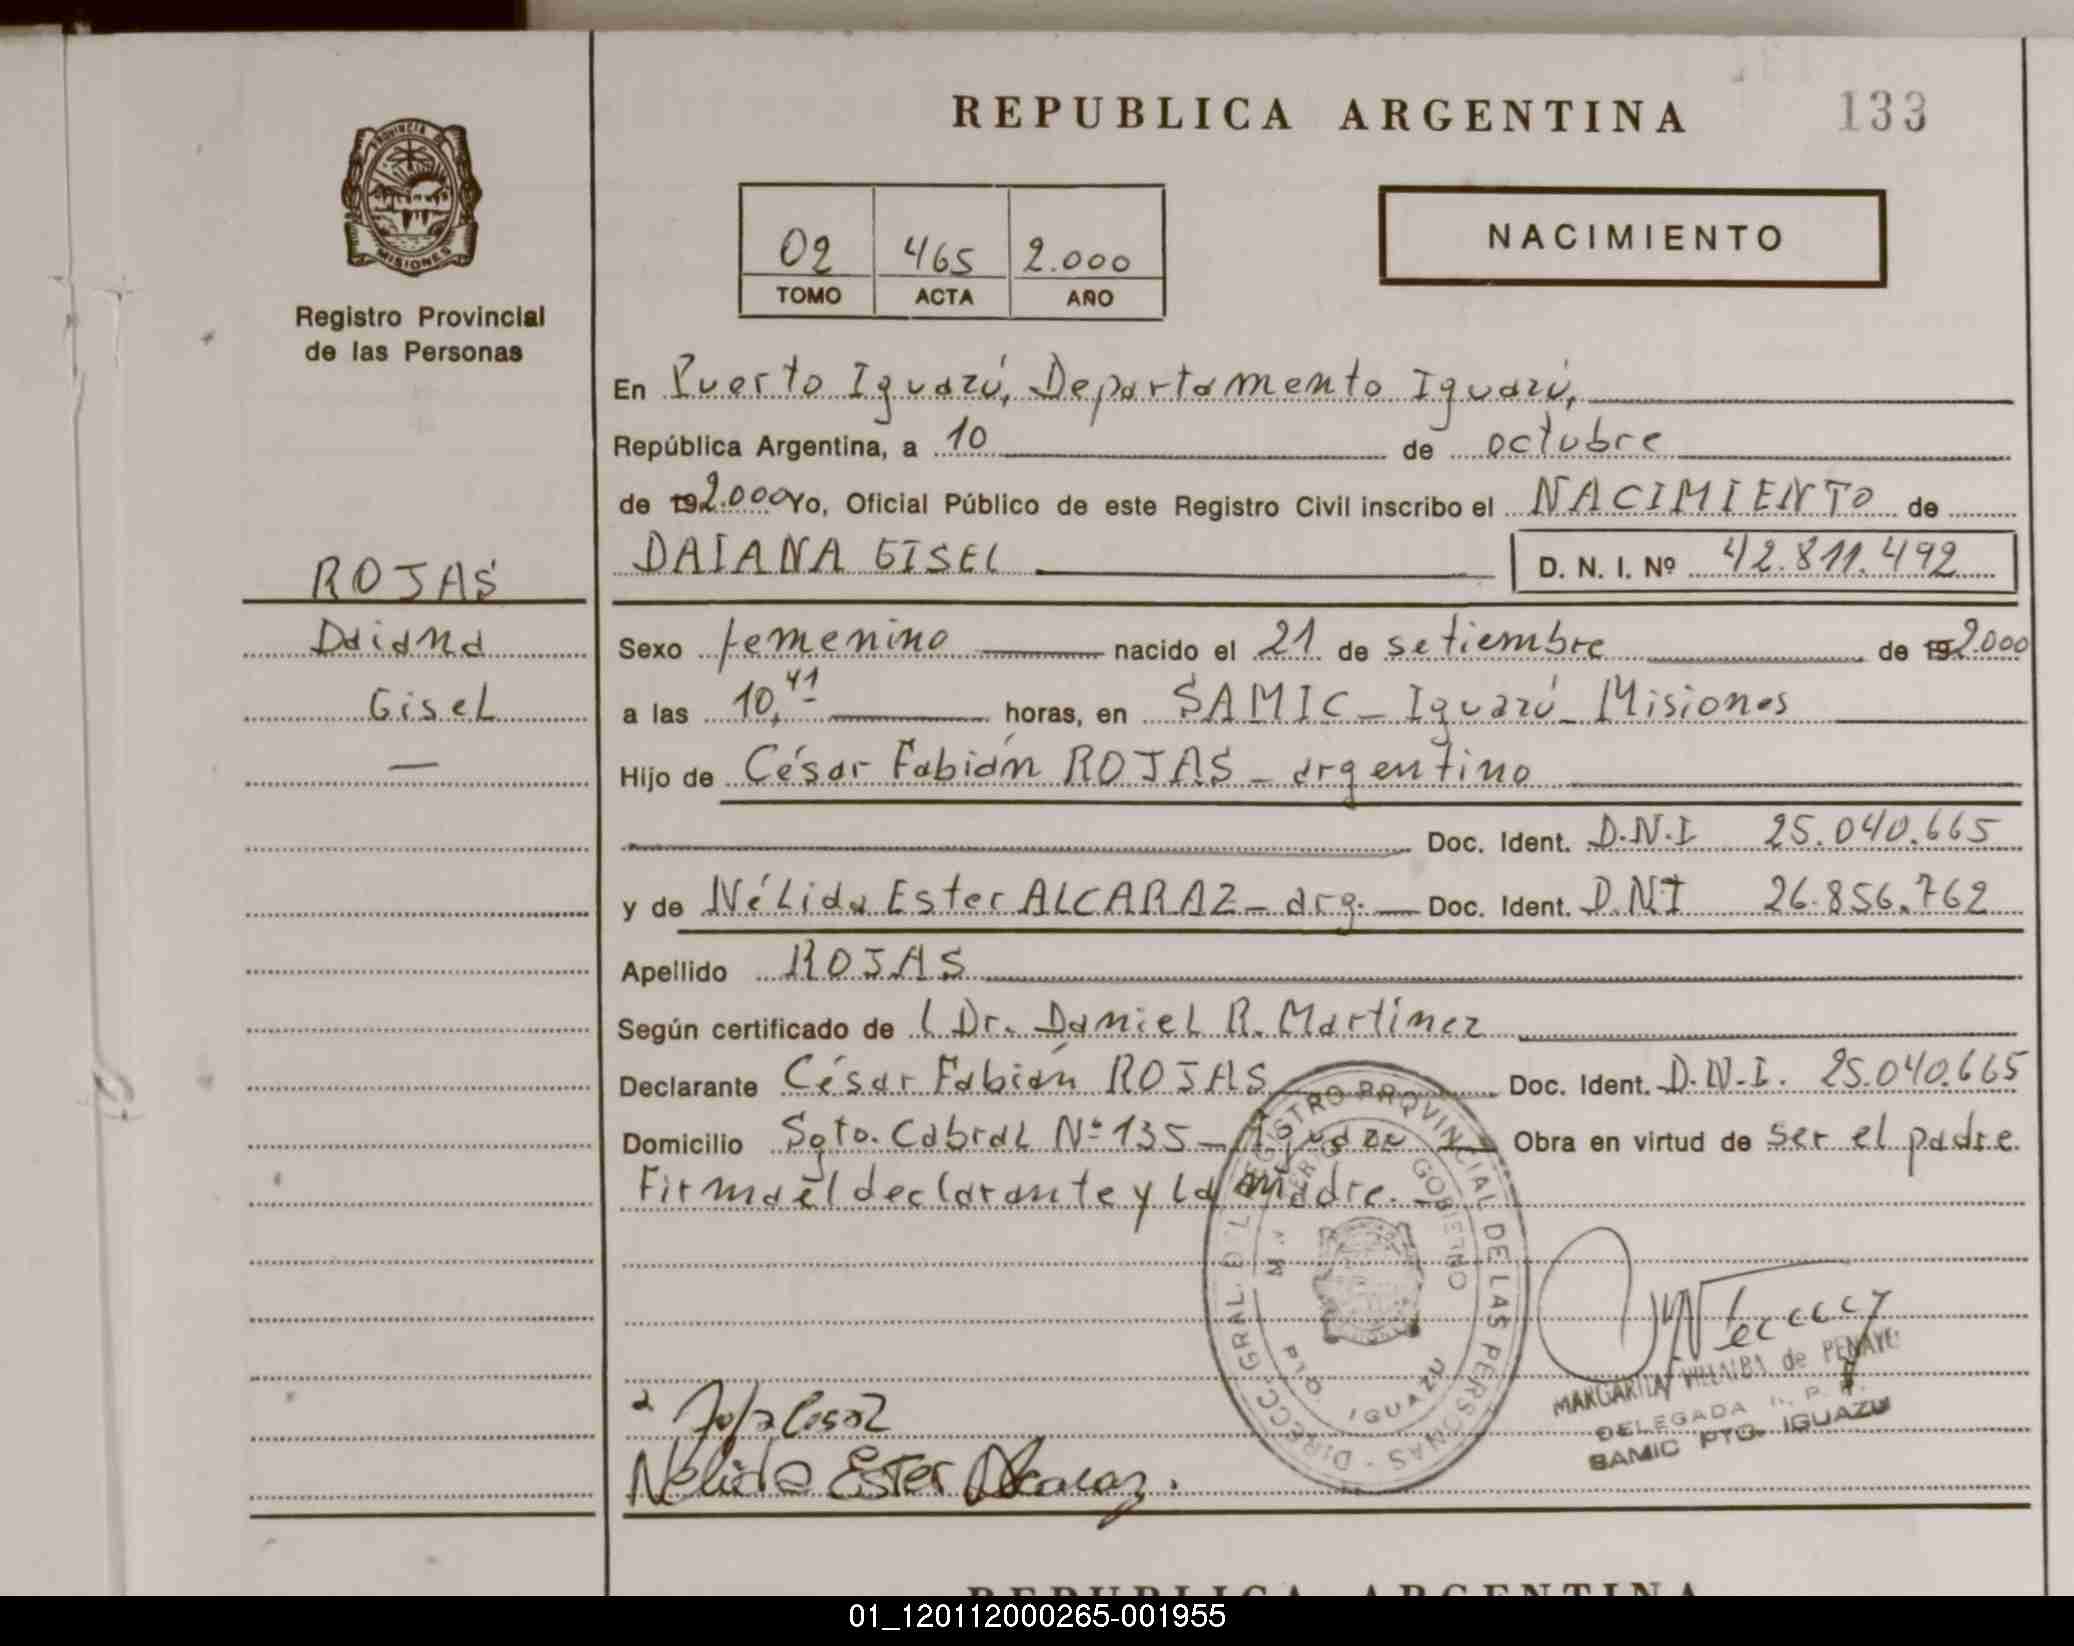 REPUBLICA ARGENTINA 133
PROVINCIA DE
MISIONES
Registro Provincial
de las Personas
02 465 2.000
TOMO ACTA AÑO
NACIMIENTO
En Puerto Iguazú, Departamento Iguazú,
República Argentina, a 10 de octubre
de 192.000 Yo, Oficial Público de este Registro Civil inscribo el NACIMIENTO de
DAIANA GISEL D. N. I. Nº 42.811.492
ROJAS
Daiana
Gisel
Sexo femenino nacido el 21 de setiembre de 192.000
a las 10,41 horas, en SAMIC - Iguazú - Misiones
Hijo de César Fabián ROJAS - argentino
Doc. Ident. D.N.I 25.040.665
y de Nélida Ester ALCARAZ - arg. Doc. Ident. D.NI 26.856.762
Apellido ROJAS
Según certificado de l Dr. Daniel R. Martínez
Declarante César Fabián ROJAS Doc. Ident. D.N.I. 25.040.665
Domicilio Sgto. Cabral Nº 135 - Iguazú Obra en virtud de ser el padre.
Firma el declarante y la madre.
DIRECC. GRAL. DEL REGISTRO PROVINCIAL DE LAS PERSONAS
GOBIERNO
PTO. IGUAZU
MARGARITA VILLALBA de PENAYO
DELEGADA R. P. P.
SAMIC PTO. IGUAZU
Nélida Ester Alcaraz.
REPUBLICA ARGENTINA
01_120112000265-001955